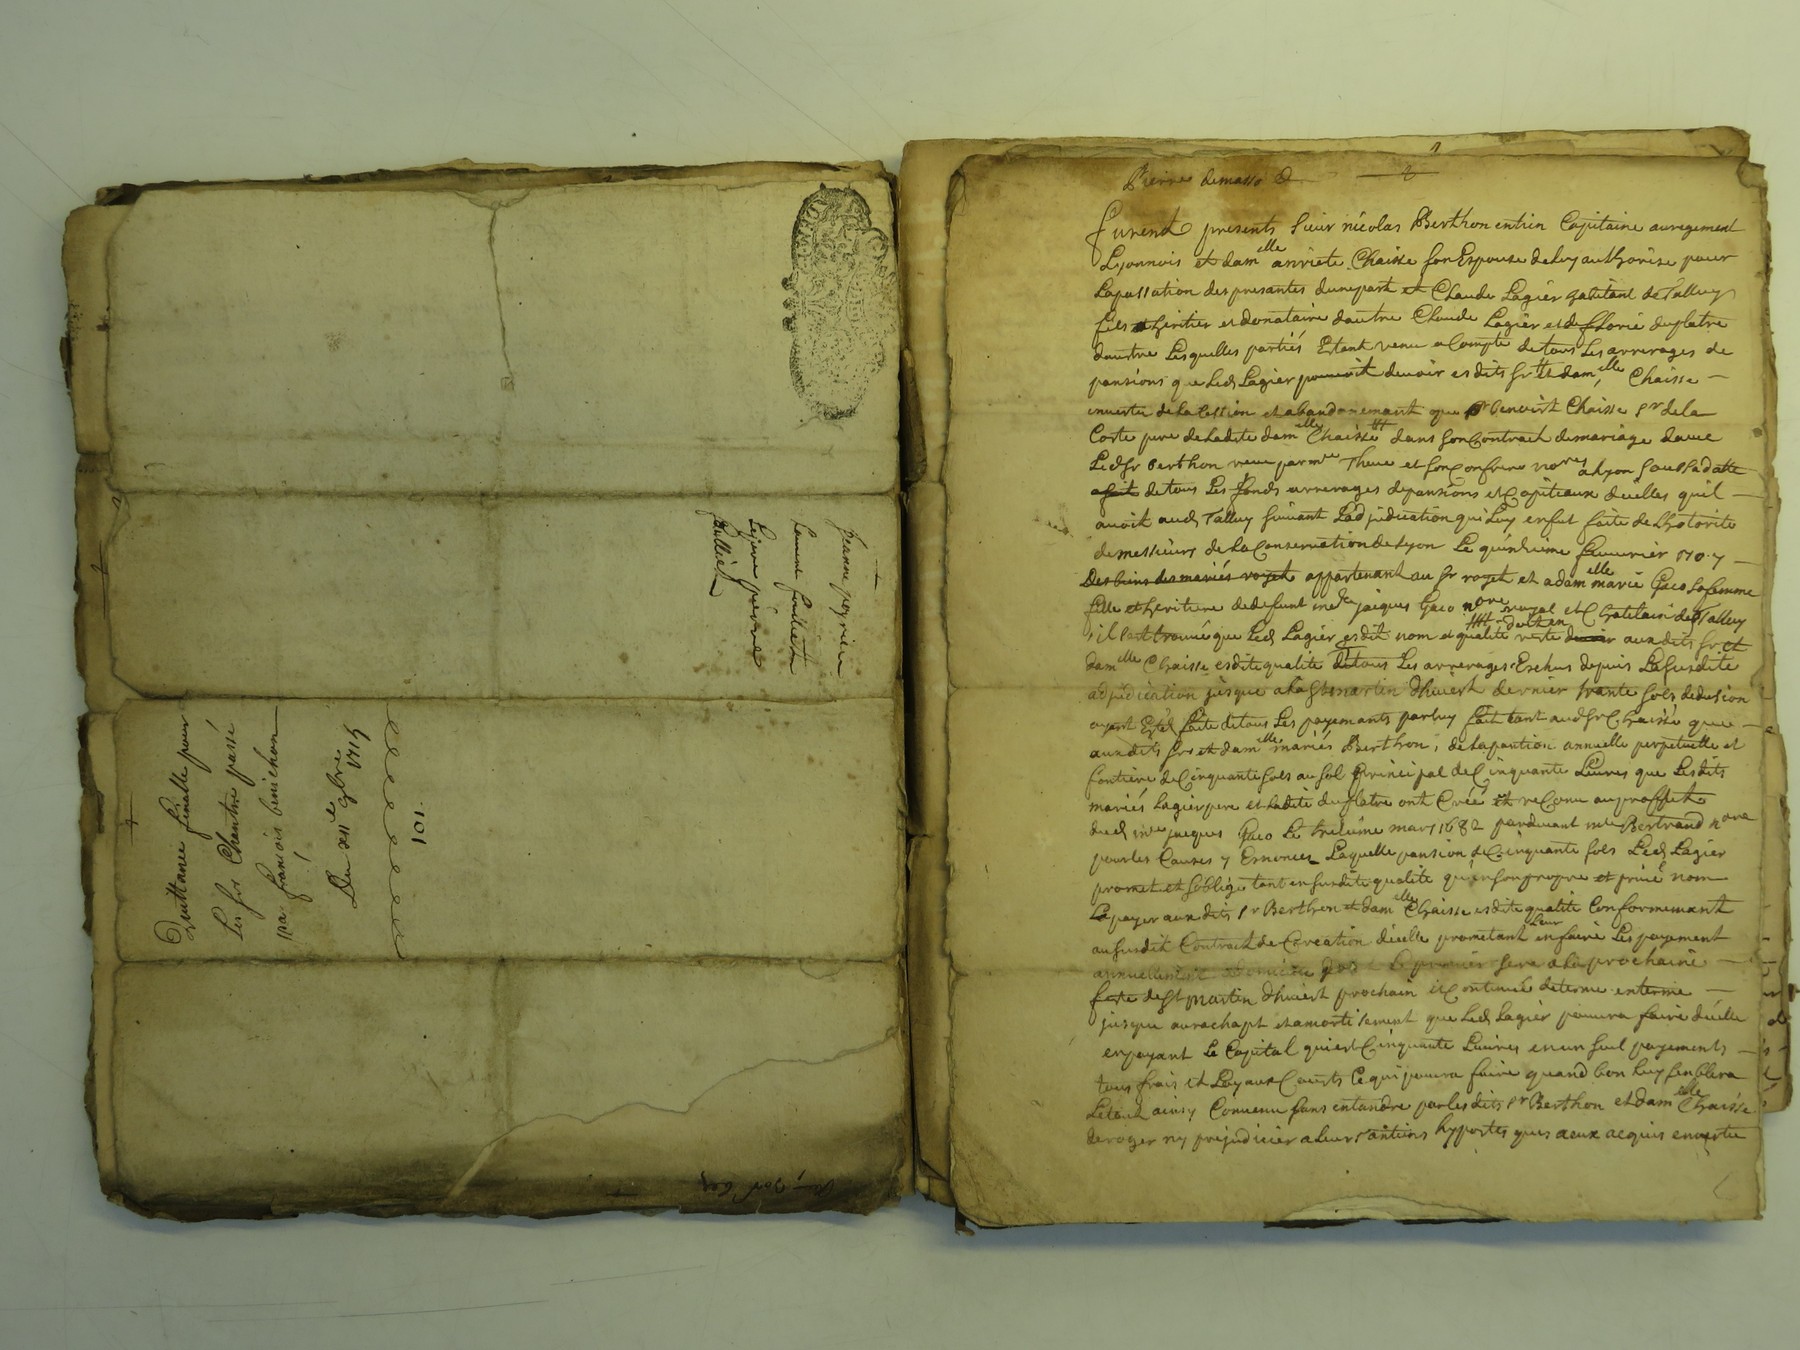 Quittance finalle pour
Les srs Chantre passé
par francois benichon
Du xxe 9bre
1715
101.
Jeanne peyrieu
Laurent
Lejeune pierre
Pierre demasso
2
furent presents sieur nicolas Berthon entien Capitaine au regement
Lyonnois et dam elle anriete Chaisse son Espouse de luy authorize pour
la passation des presantes dunepart et Claude Lagier habitant de Talluy
fils et heritier et donataire dautre Claude Lagier et de florie duplatre
dautre Lesquelles partiés Estant venu a Compte de tous Les arrerages de
pansions que Led Lagier pouvoit devoir esdits sr Et dam elle Chaisse
en vertu de la Cession et abandonemant que sr benoist Chaisse sr de la
Coste pere de ladite dam elle Chaisse dans son Contrach de mariage avec
Led sr berthon receu par me Theve et son Confrere nores a lyon sous sa datte
a fait de tous Les fonds arrerages de pansions et Capiteaux dicelles quil
avoit aud Talluy suivant Ladjudication qui luy en fut faite de Lhotorite
de messieurs de la Conservation de Lyon Le quinzieme feuvrier 1707
Des biens des mariés royet appartenant au sr royet et a dam elle marie Gaco sa femme
fille et heritiere de defunt me jacques Gaco nore royal et Chatelain de Talluy
s'il sest trouvé que Led Lagier esdit nom et qualité reste devoir aux dits sr et
dam elle Chaisse esdite qualite de tous Les arrerages Escheus depuis La susdite
adjudication jusque a la st martin dhivert dernier trante sols dedusion
ayant Esté faite de tous Les payemants par luy fait tant aud sr Chaisse que
aux dits sr et dam elle mariés Berthon, de la pantion annuelle perpetuelle et
fontiere de Cinquante sols au sol principal de Cinquante Livres que Lesdits
mariés Lagier pere et ladite duplatre ont Créé et reConu au proffit
dud me jacques Gaco Le treizième mars 1682 pardevant me Bertrand nore
pour les Causes y Enoncées Laquelle pansion de Cinquante sols Led Lagier
promet et soblige tant en susdite qualité qu'en son propre et privé nom
La payer aux dits sr Berthon et dam elle Chaisse esdite qualité Conformemant
au susdit Contrach de Creation dicelle prometant leur en faire Les payement
annuellement Le premier sera a la prochaine
feste de st martin dhivert prochain et Continué de terme en terme
jusque au rachapt et amortisement que Led Lagier pourra faire dicelle
en payant Le Capital qui est Cinquante Livres en un seul payements
tous frais et Loyaux Couts Ce qui pourra faire quand bon luy semblera
Letout ainsy Convenu sans entandre par les dits sr Berthon et dam elle Chaisse
deroger ny prejudicier a leurs antiens hypoteques a eux acquis en vertu